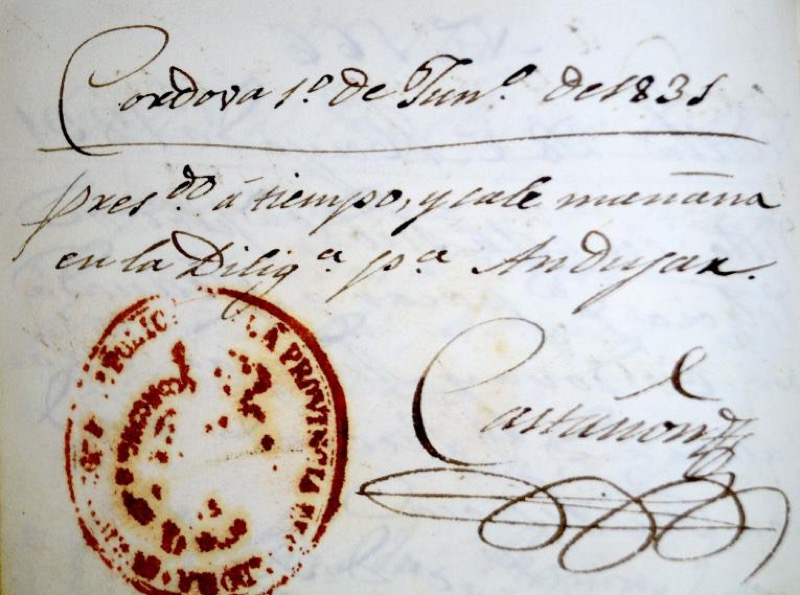 Cordova 1º de Junº. de 1831
presdo á tiempo, y sale mañana
en la Diligª pª Andujar.
Castañon
POLIC LA PROVINCIA DE